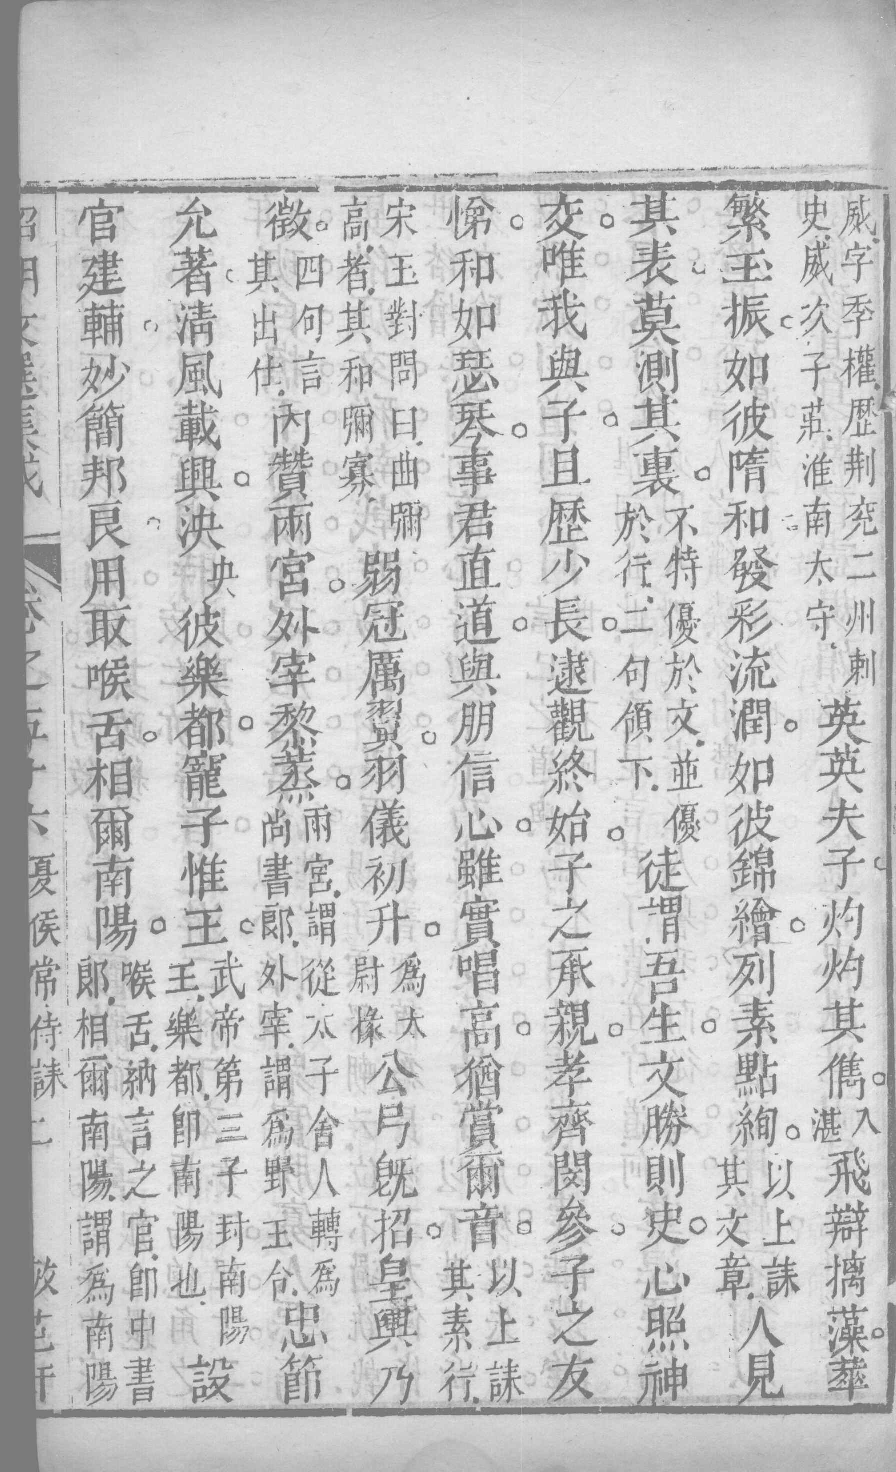 威字季權歷荆兖二州刺史威次子莊淮南太守英英夫子灼灼其儁入湛飛辯摛藻華
繁玉振如彼隋和發彩流潤如彼錦繢列素點絢以上誄其文章人見
其表莫測其裏不特優於文並優於行二句領下徒謂吾生文勝則史心照神
交唯我與子且歷少長逮觀終始子之承親孝齊閔參子之友
悌和如瑟琴事君直道與朋信心雖實唱高猶賞爾音以上誄其素行
宋玉對問曰曲彌高者其和彌寡弱冠厲翼羽儀初升爲太尉掾公弓旣招皇輿乃
徵四句言其出仕內贊兩宮外宰黎蒸兩宮謂從太子舍人轉爲尚書郎外宰謂爲野王令忠節
允著清風載興泱央彼樂都寵子惟王武帝第三子封南陽王樂都卽南陽也設
官建輔妙簡邦良用取喉舌相爾南陽喉舌納言之官卽中書郎相爾南陽謂爲南陽
昭明文選集成 卷之五十六 夏侯常侍誄 二